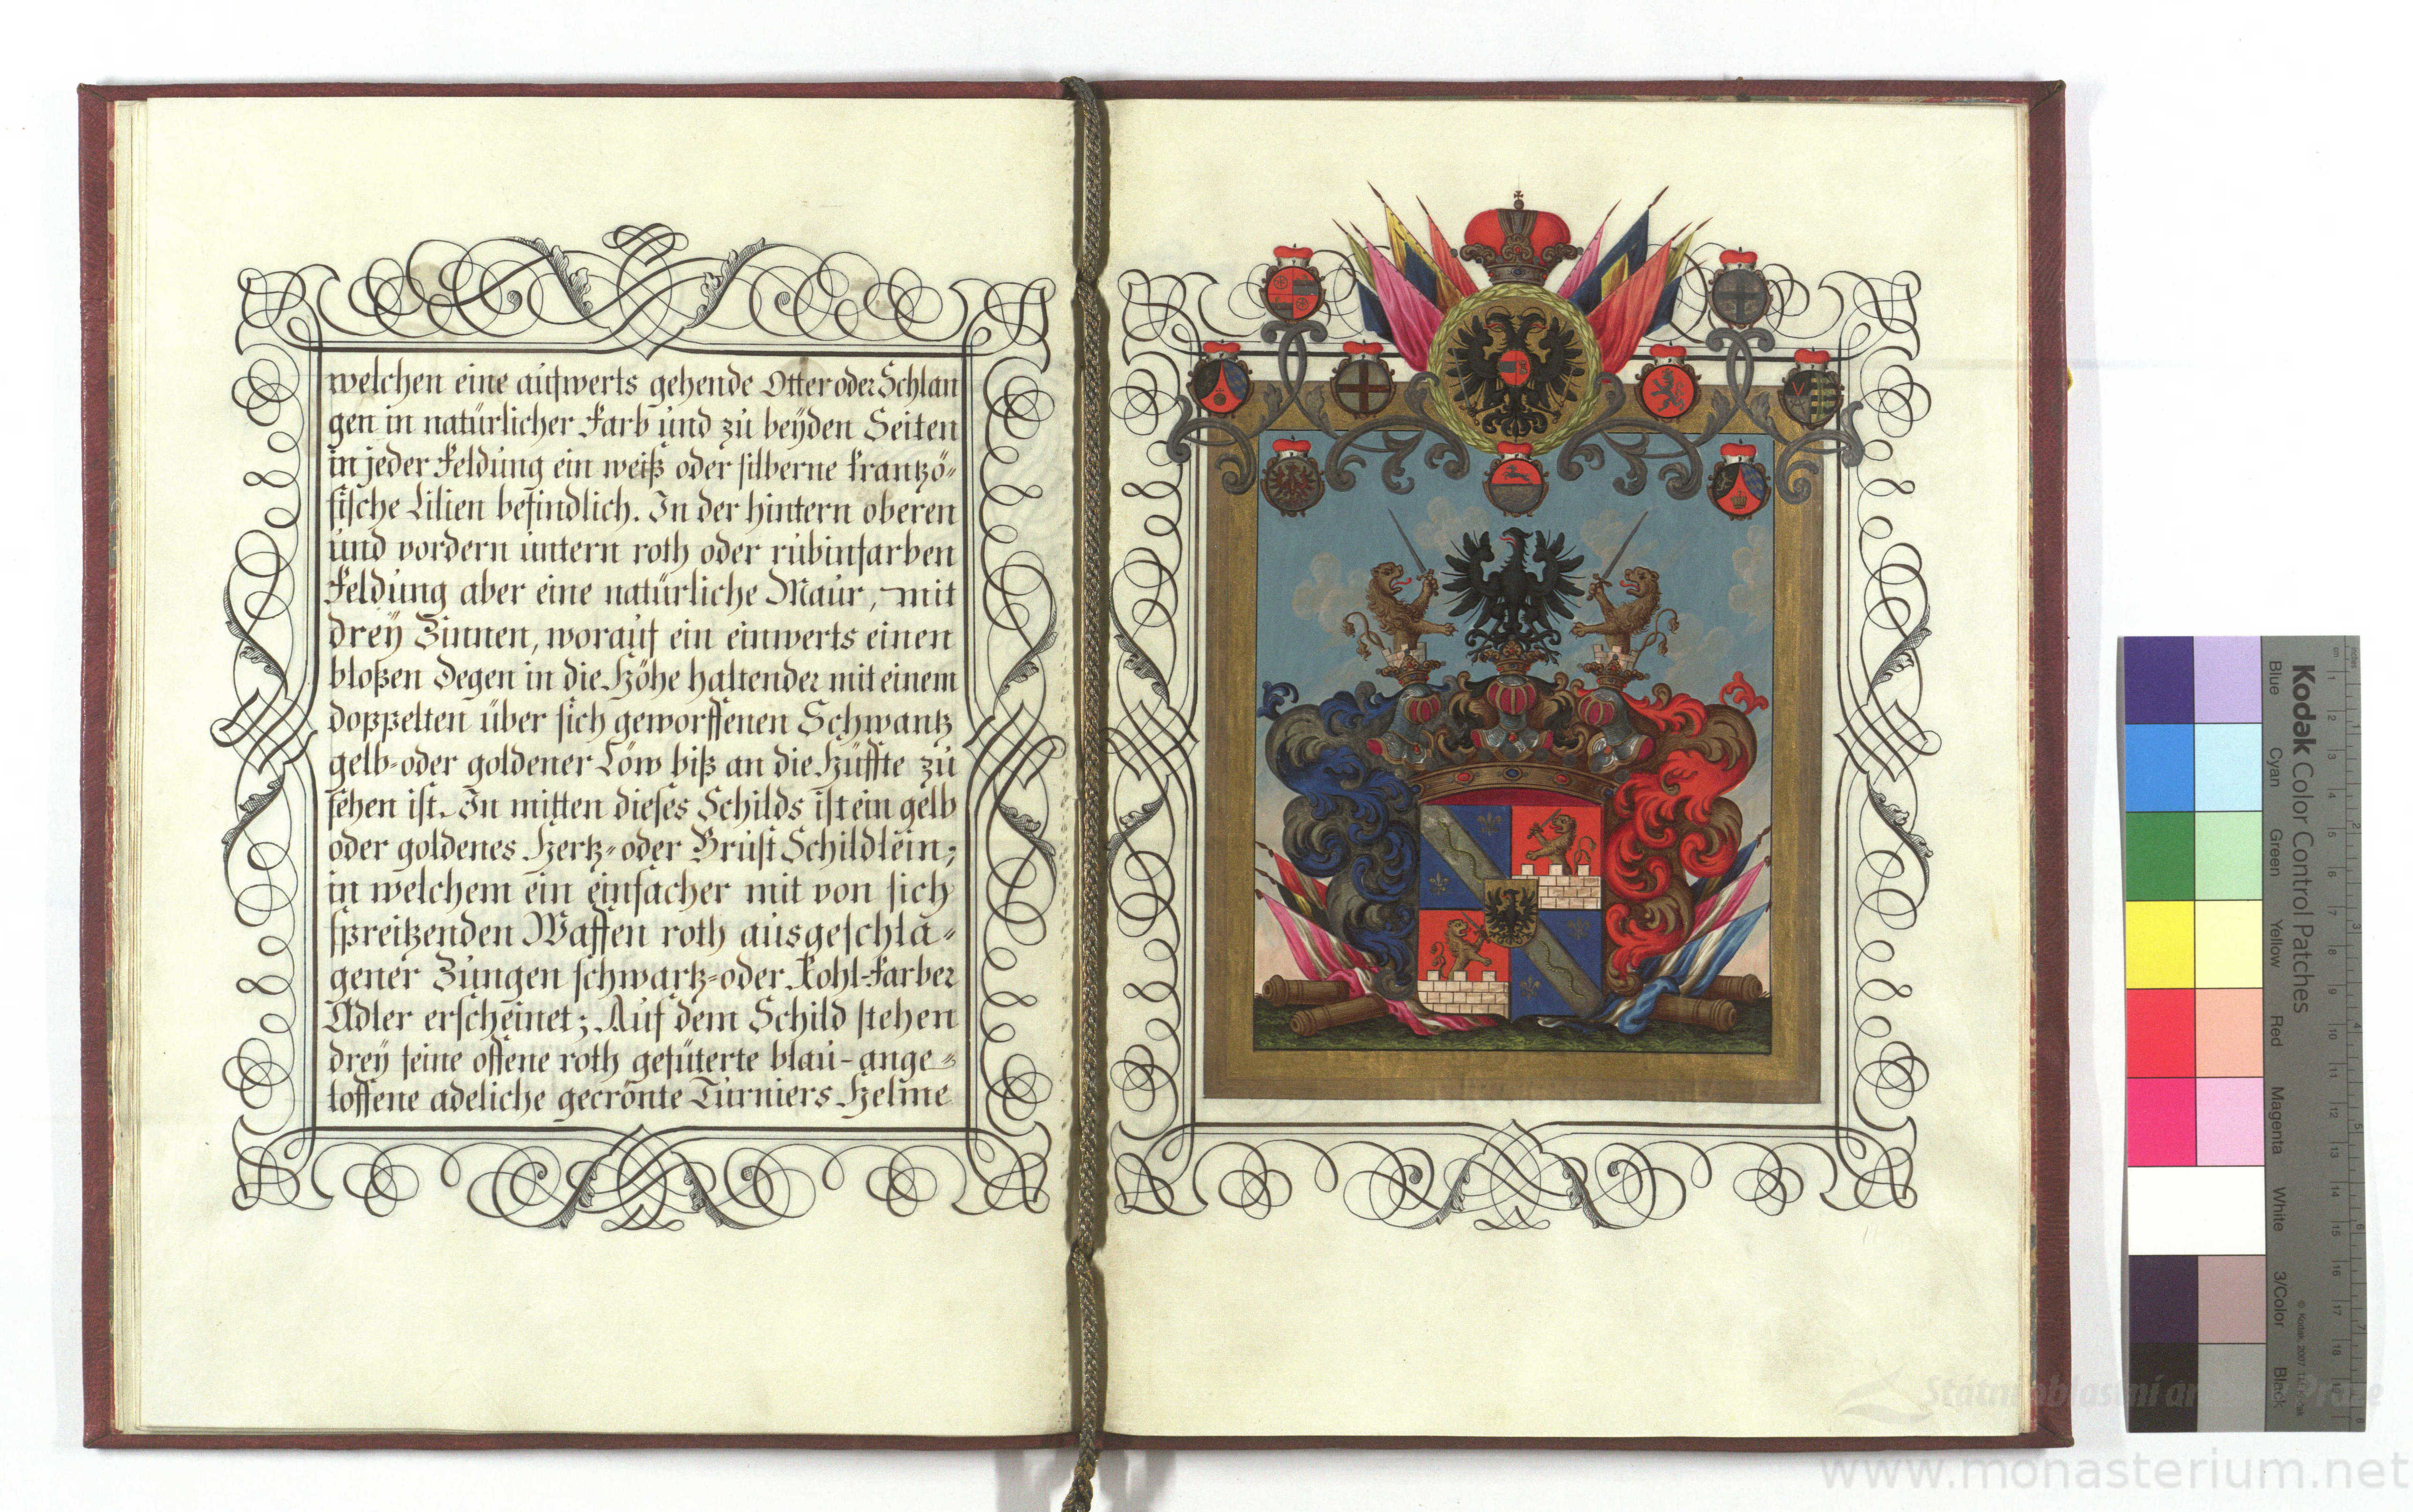 welchen eine aufwerts gehende Otter oder Schlan
gen in natürlicher Farb und zu beÿden Seiten
in jeder Feldung ein weiß oder silberne frantzö-
sische Lilien befindlich. In der hintern oberen
und vordern untern roth oder rubinfarben
Feldung aber eine natürliche Maur, mit
dreÿ Zinnen, worauf ein einwerts einen
bloßen Degen in die Höhe haltender mit einem
doppelten über sich geworffenen Schwantz
gelb- oder goldener Löw biß an die Hüffte zu
sehen ist. In mitten dieses Schilds ist ein gelb
oder goldenes Hertz- oder Brust Schildlein;
in welchem ein einfacher mit von sich
spreitzenden Waffen roth ausgeschla-
gener Zungen schwartz- oder Kohl-farber
Adler erscheinet; Auf dem Schild stehen
dreÿ freÿe offene roth gefüterte blau-ange-
loffene adeliche gecrönte Turniers Helme
Kodak Color Control Patches
Blue Cyan Green Yellow Red Magenta White 3/Color Black
© Kodak, 2007
Státní oblastní archiv v Praze
www.monasterium.net